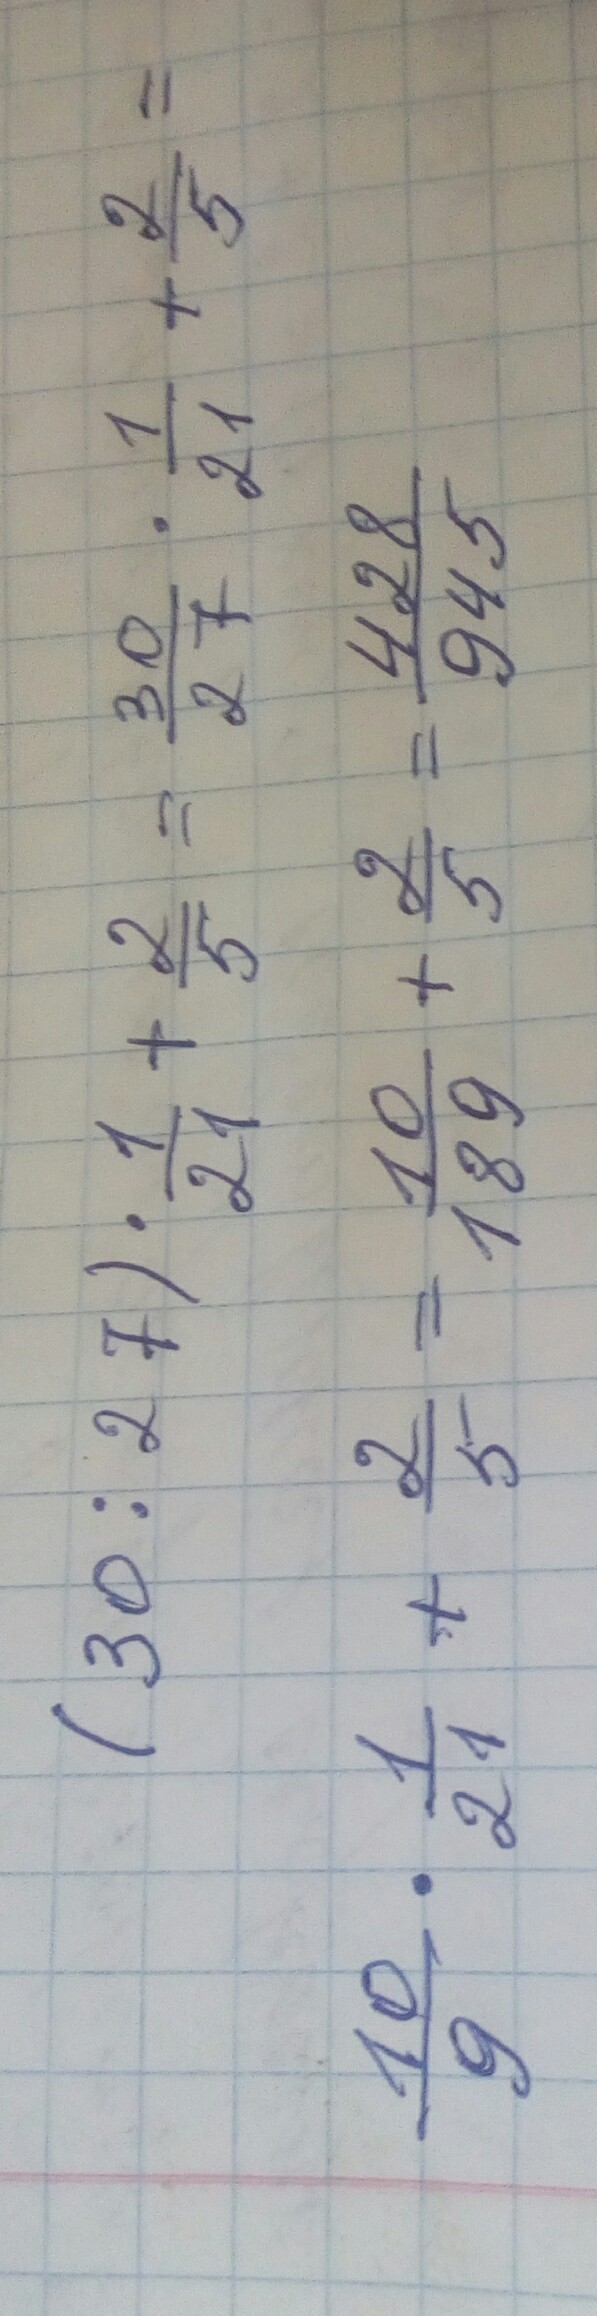 (30:27)·1/21+2/5=30/27·1/21+2/5=
10/9·1/21+2/5=10/189+2/5=428/945